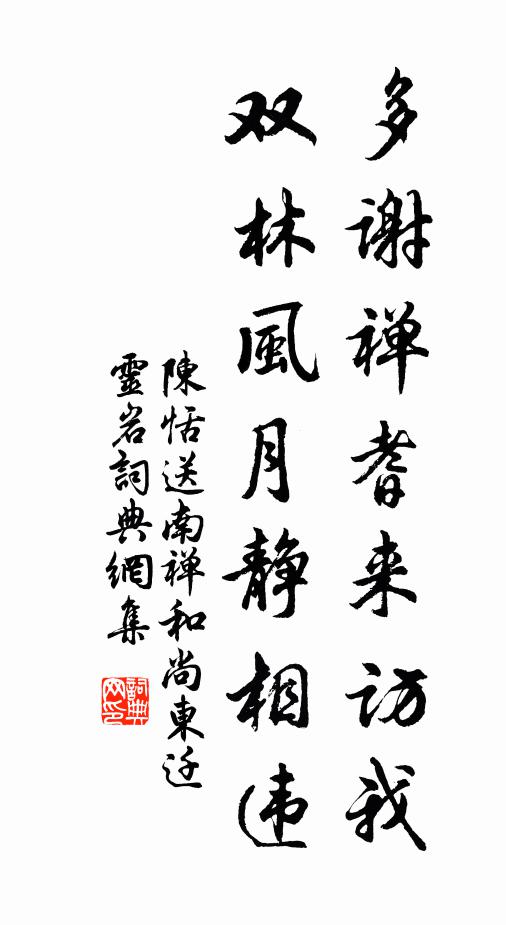 多谢禅耆来访我
双林風月静相违
陳恬送南禅和尚東迁
靈岩詞典網集
詞典网印